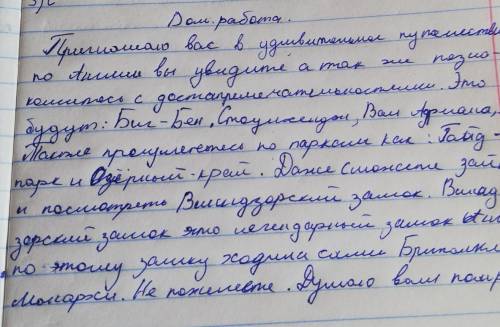 Дом. работа.
Приглошаю вас в удивительное путешестви
по Англии вы увидите а так же позна
комитесь с достапремечательностями. Это
будут: Биг-Бен, Стоунхендж, Вал Адриана,
Также прогуляетесь по паркам как: Гайд-
парк и Озёрный-край. Даже сможете зай
и посмотреть Виндзорский замок. Винд
зорский замок это легендарный замок Анг
по этому замку ходили сами Британск
Монархи. Не пожелеете. Думаю вам понр